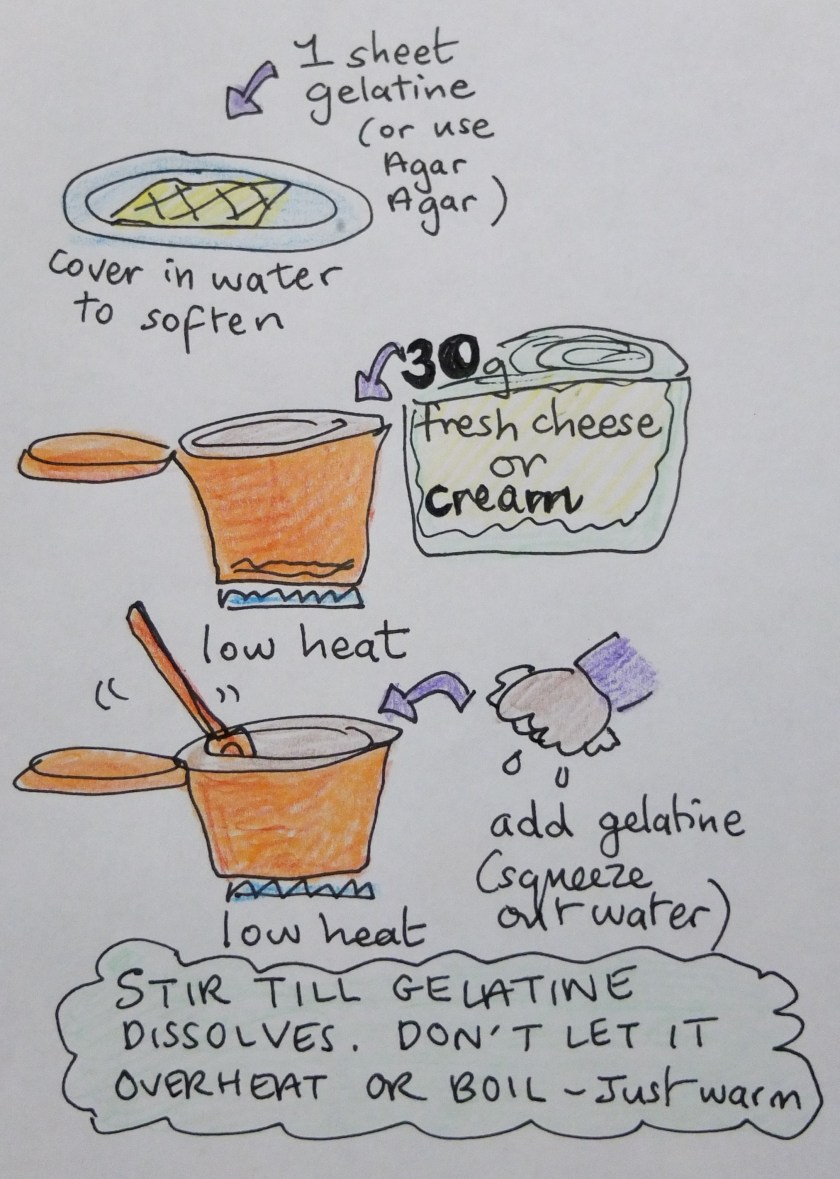 1 sheet
gelatine
(or use
Agar
Agar)
Cover in water
to soften
30g
fresh cheese
or
cream
low heat
add gelatine
(squeeze
out water)
low heat
STIR TILL GELATINE
DISSOLVES. DON'T LET IT
OVERHEAT OR BOIL - Just warm